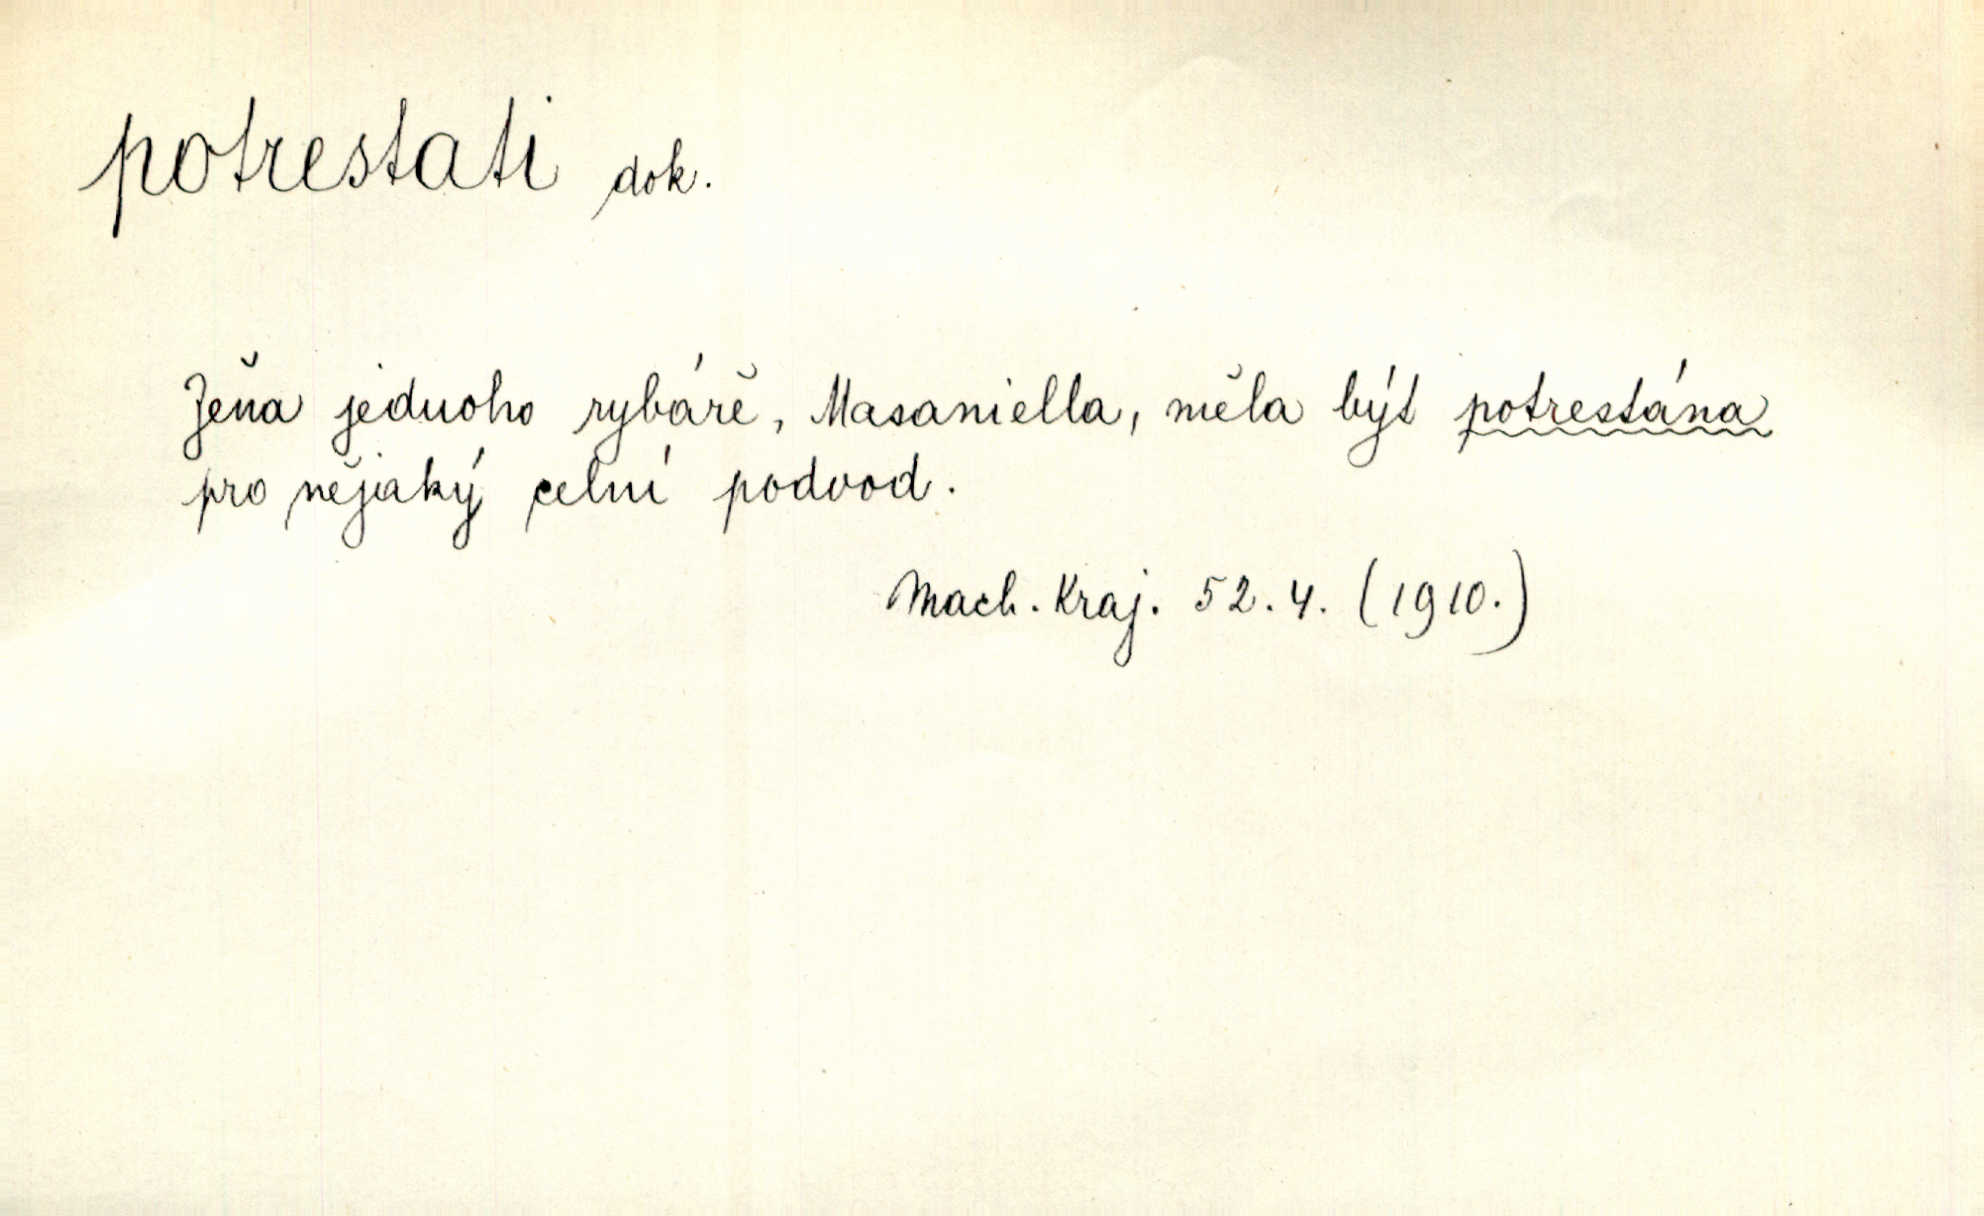 potrestati dok.
Žena jednoho rybáře, Masaniella, měla být potrestána
pro nějaký celní podvod.
Mach. Kraj. 52.4. (1910.)